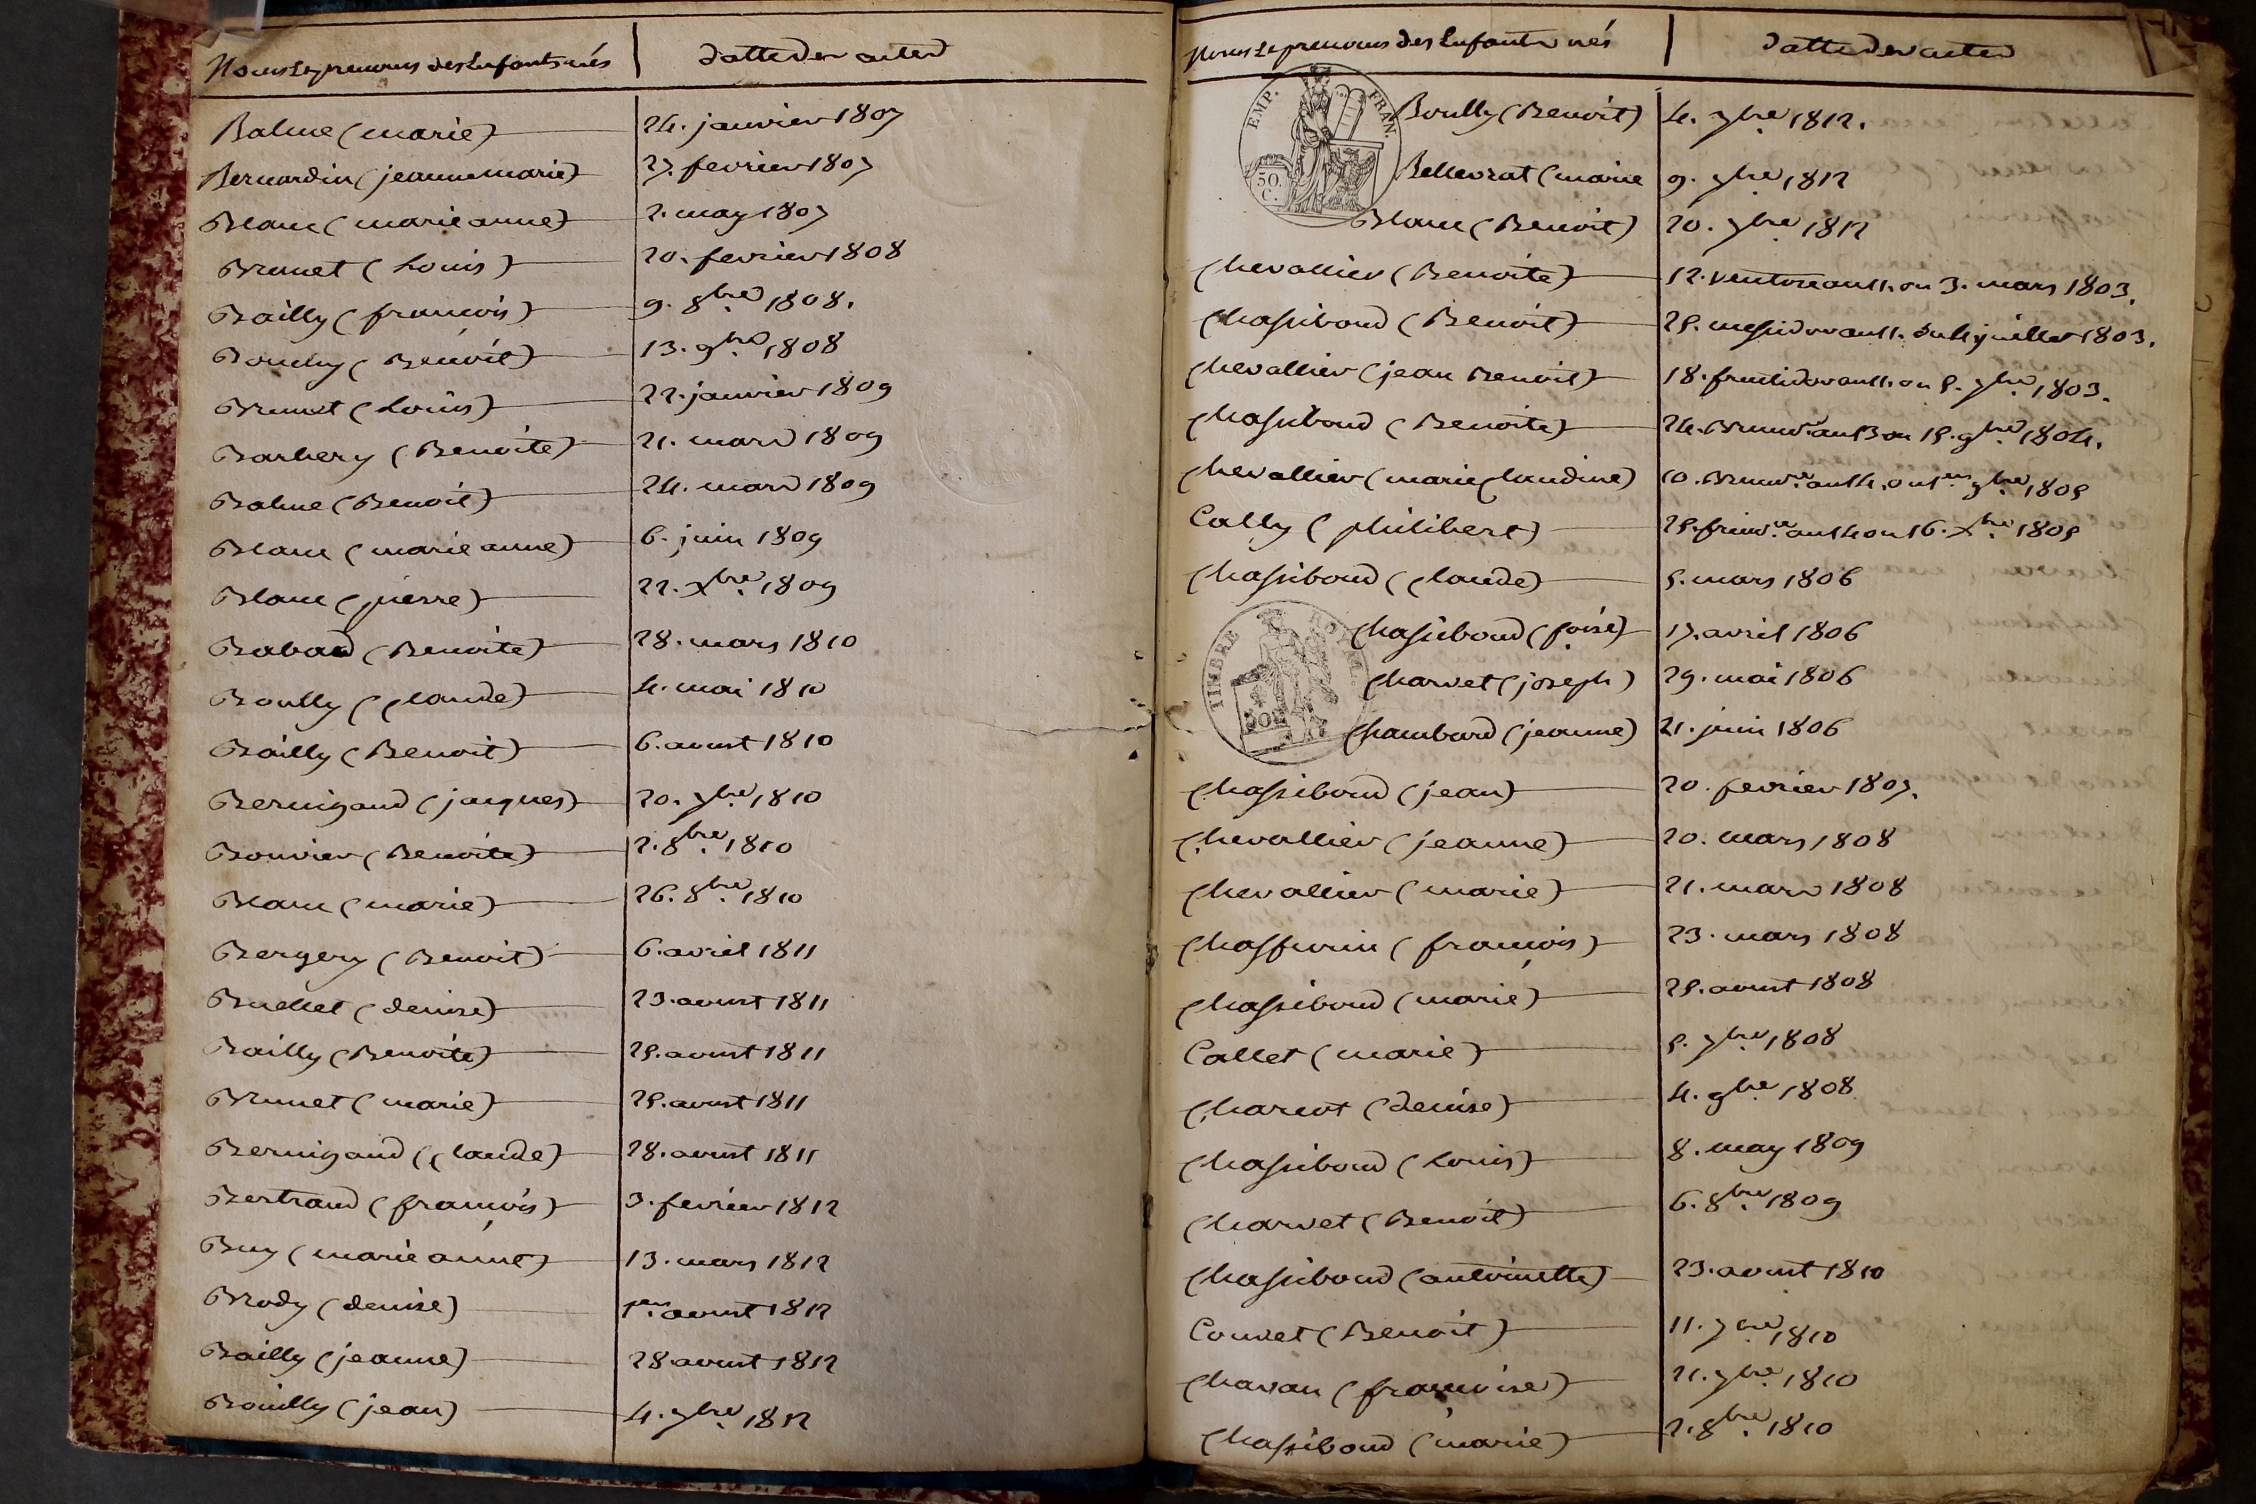 Noms et prenoms des Enfants nés | datte des actes
Balme (marie) 24. janvier 1807
Bernardin (jeanne marie) 27. fevrier 1807
Blanc (marie anne) 2. may 1807
Brunet (Louis) 20. fevrier 1808
Bailly (françois) 9. 8bre. 1808.
Bouchy (Benoit) 13. 9bre. 1808
Brunet (Louis) 22. janvier 1809
Barbery (Benoite) 21. mars 1809
Balme (Benoit) 24. mars 1809
Blanc (marie anne) 6. juin 1809
Blanc (pierre) 22. Xbre. 1809
Babad (Benoite) 28. mars 1810
Boully (Claude) 4. mai 1810
Bailly (Benoit) 6. aoust 1810
Bernigaud (jacques) 20. 7bre. 1810
Bouvier (Benoite) 2. 8bre. 1810
Blanc (marie) 26. 8bre. 1810
Bergery (Benoit) 6. avril 1811
Buellet (denise) 23. aoust 1811
Bailly (Benoite) 25. aoust 1811
Brunet (marie) 25. aoust 1811
Bernigaud (Claude) 28. aoust 1811
Bertrand (françois) 3. fevrier 1812
Buy (marie anne) 13. mars 1812
Brody (denise) 1er. aoust 1812
Bailly (jeanne) 28 aoust 1812
Bouilly (jean) 4. 7bre. 1812
Noms et prenoms des Enfants nés | datte des actes
EMP. FRAN.
50. C.
Boully (Benoit) 4. 7bre. 1812.
Bellevrat (marie 9. 7bre. 1812
Blanc (Benoit) 20. 7bre. 1812
Chevallier (Benoite) 12. ventose an 11. ou 3. mars 1803.
Chassiboud (Benoit) 25. messidor an 11. du 14 juillet 1803.
Chevallier (jean Benoit) 18. fructidor an 11. ou 5. 7bre. 1803.
Chassiboud (Benoite) 24. Brumre. an 13 ou 15. 9bre. 1804.
Chevallier (marie Claudine) 10. Brumre. an 14. ou 1er. 9bre. 1805
Cally (philibert) 25. frimre. an 14 ou 16. Xbre. 1805
Chassiboud (Claude) 5. mars 1806
TIMBRE ROYAL
Chassiboud (foise) 17. avril 1806
Charvet (joseph) 29. mai 1806
Chambard (jeanne) 21. juin 1806
Chassiboud (jean) 20. fevrier 1807.
Chevallier (jeanne) 20. mars 1808
Chevallier (marie) 21. mars 1808
Chaffurin (françois) 23. mars 1808
Chassiboud (marie) 25. aoust 1808
Callet (marie) 5. 7bre. 1808
(denise) 4. 9bre. 1808
Chassiboud (Louis) 8. may 1809
Charvet (Benoit) 6. 8bre. 1809
Chassiboud (antoinette) 23. aoust 1810
Couvet (Benoit) 11. 7bre. 1810
Chavan (françoise) 21. 7bre. 1810
Chassiboud (marie) 2. 8bre. 1810